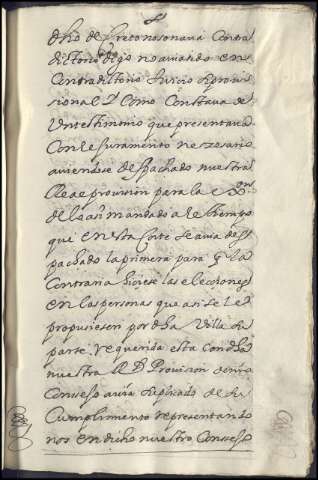 dho de pretono sonaua Contra
dictorio digo no auiendo en
Contradictorio Juicio se prouis
sional D. Como Constaua de
Vntestimonio que presentaua
Con el Juramento neszesario
auiendose despachado nuestra
Real prouision para la
de las mandado al tiempo
que En esta Corte se auia des
pachado la primera para q la
Contraria hiziese las elecciones
en las personas que asi se le
propusiesen por dha Villa
parte requerida esta con dha
nuestra R Prouision de mio
Conssejo auia suplicado de su
Cumplimiento representando
nos en dicho nuestro Conssejo